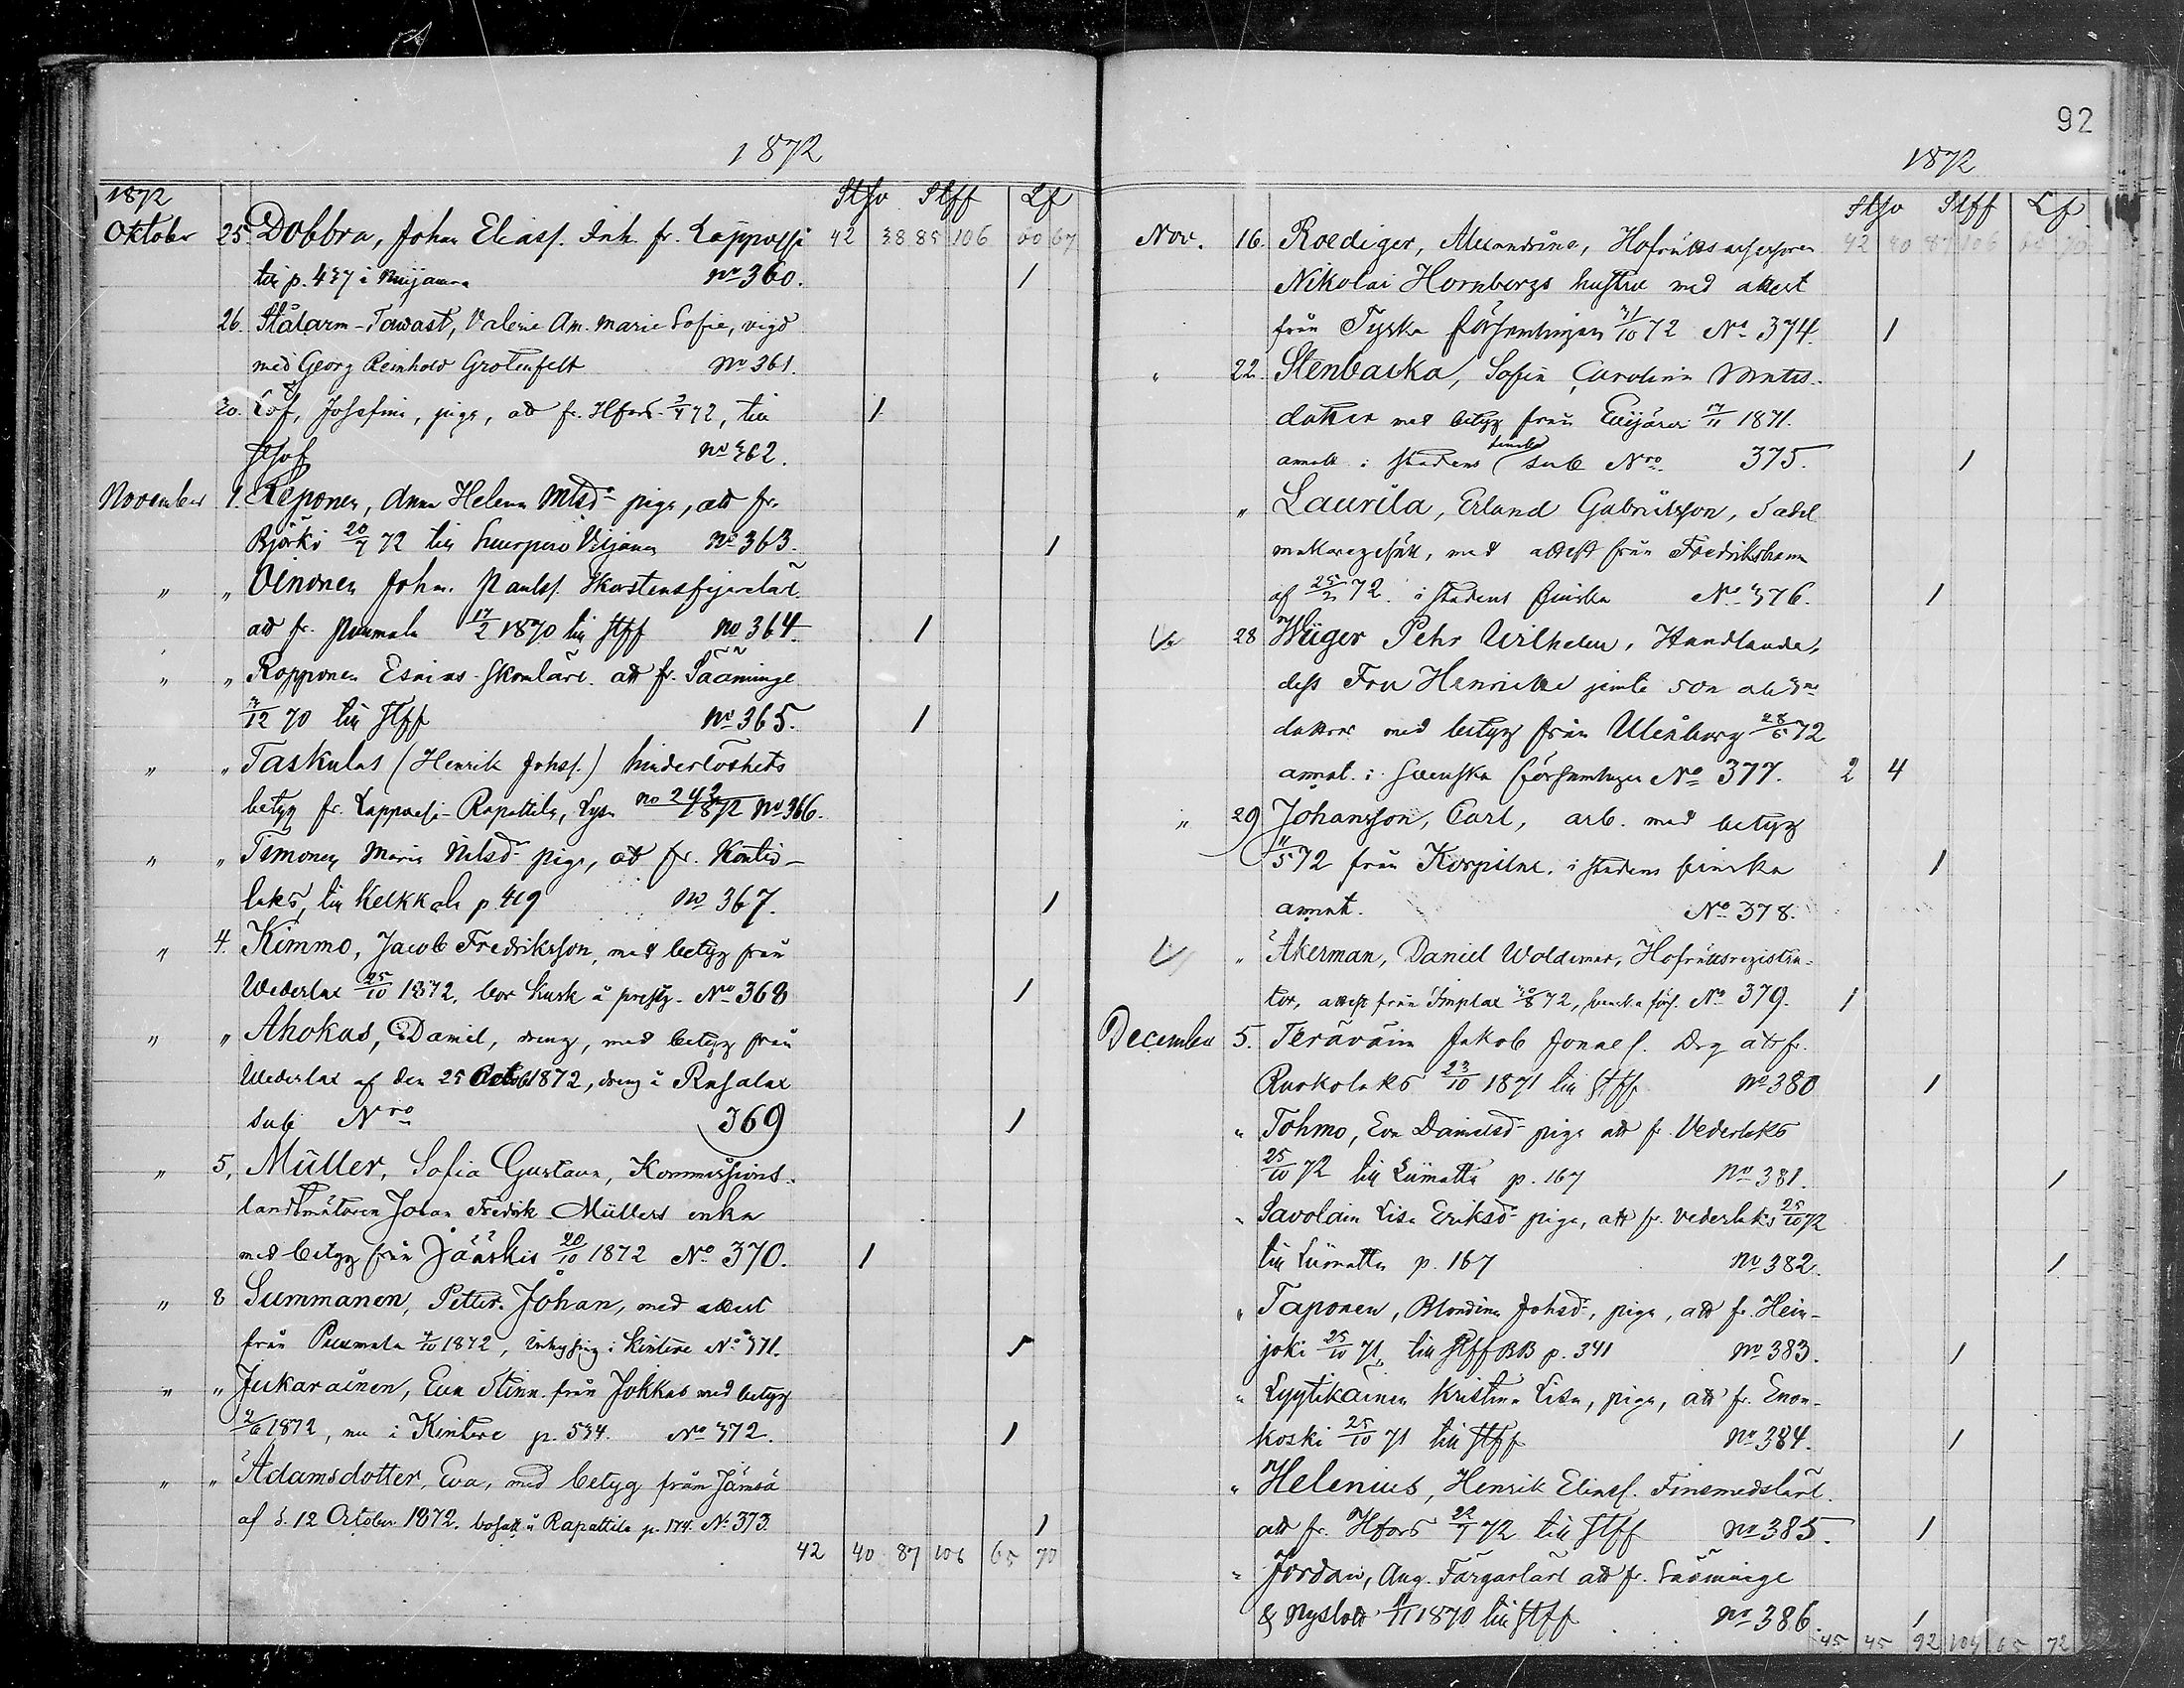 1872
1872 Stsv Stff Lf
Oktober 25. Dobbra, Johan Eliass. Inh. fr. Lappvesi 42 38 85 106 60 67
till p. 437 i Nuijamaa No 360. 1
26. Stålarm-Tawast, Valerie Am. Marie Sofie, vigd
med Georg Reinhold Grotenfelt No 361.
30. Löf, Josefina, piga, att fr. Hfors 72, till 1
No 362.
November 1. Reponen, Anna Helena Mtsdr piga, att fr.
Björkö 20/9 72 till Suurpero No 363. 1
" " Oinonen Johan Paulss. Skorstensfejarelärl.
att fr. Puumala 17/2 1870 till Stff No 364. 1
" " Ropponen Esaias Skomlärl. att fr. Sääminge
/12 70 till Stff No 365. 1
" " Taskulas (Henrik Johss.) hinderlöshets
betyg fr. Lappvesi-Rapattila, Lysn No 242 1872 No 366.
" " Timonen Maria Nilsdr piga, att fr. Kontio-
laks, till Kelkkala p 419 No 367. 1
" 4. Kimmo, Jacob Fredriksson, med betyg från
Wederlax 25/10 1872, bor No 368 1
" " Ahokas, Daniel, dreng, med betyg från
Wederlax af den 25 Octob 1872, dreng i Rasalax
sub Nro 369 1
" 5. Müller, Sofia Gustava, Kommissions-
landtmätaren Johan Fredrik Müllers enka
med betyg från Jääskis 20/10 1872 No 370. 1
" 8 Summanen, Petter Johan, med attest
från Puumala /10 1872, i Kintere No 371. 1
" " Jukarainen, Eva Stina från Jokkas med betyg
2/6 1872, nu i Kintere p. 534. No 372. 1
" " Adamsdotter, Eva, med betyg från Jämsä
af d. 12 October 1872. bosatt i Rapattila p. 174. No 373. 1
42 40 87 106 65 70
92
1872
Stsv Stff Lf
Nov. 16. Roediger, Alexandrine, Hofrättsassessoren 42 40 87 106 65 70
Nikolai Hornborgs hustru med attest
från Tyska församlingen 31/10 72 No 374. 1
" 22. Stenbacka, Sofia Carolina Matts-
dotter med betyg från Euijärvi 17/11 1871.
anmält i stadens finska sub Nro 375. 1
" Laurila, Erland Gabrielsson, Sadel
makaregesäll, med attest från Fredrikshamn
af 25/2 72. i stadens finska No 376. 1
28 Wiiger Pehr Wilhelm, Handlande,
dess Fru Henriette jemte son och 3ne
döttrar med betyg från Uleåborg 28/5 72
anmäl. i Svenska församlingen No 377. 2 4
" 29. Johansson, Carl, arb. med betyg
/5 72 från Korpilax. i stadens finska 1
anmält. No 378.
" Åkerman, Daniel Woldemar, Hofrättsregistra-
tor, attest från Impilax /8 72, svenska förs. No 379. 1
December 5. Teräväin Jakob Jonaes. Drg att fr.
Ruokolaks 23/10 1871 till Stff No 380 1
" Tohmo, Eva Danielsdr piga att fr. Vederlaks
25/10 72 till Liimatta p. 167 No 381. 1
" Savolain Lisa Eriksdr piga, att fr. Vederlaks 25/10 72
till Liimatta p. 167 No 382. 1
" Taponen, Blondina Johsdr, piga, att fr. Hein-
joki 25/10 71, till Stff BB p. 341 No 383. 1
" Lyytikäinen Kristina Lisa, piga, att fr. Enon-
koski 25/10 71 till Stff No 384. 1
" Helenius, Henrik Eliass. Finsmedslärl.
att fr. Hfors 22/9 72 till Stff No 385. 1
" Jordan, Aug. Färgarlärl att fr. Sääminge
& Nyslott /11 1870 till Stff No 386. 1
45 45 92 104 65 72